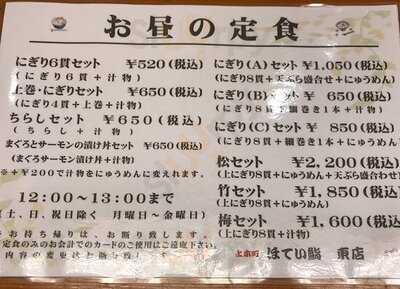 お昼の定食
にぎり6貫セット ¥520(税込)
(にぎり6貫+汁物)
上巻・にぎりセット ¥650(税込)
(にぎり4貫+上巻+汁物)
ちらしセット ¥650(税込)
(ちらし+汁物)
まぐろとサーモンの漬け丼セット ¥650(税込)
(まぐろサーモン漬け丼+汁物)
※+¥200で汁物をにゅうめんに変えれます。
12:00~13:00まで
(土、日、祝日除く 月曜日~金曜日)
お持ち帰りは、お断り致します。
定食のみのお会計でのカードのご使用はご遠慮下さい。
内容の変更はお断り致します。
にぎり(A)セット ¥1,050(税込)
(にぎり8貫+天ぷら盛合せ+にゅうめん)
にぎり(B)セット ¥650(税込)
(にぎり8貫 細巻き1本+汁物)
にぎり(C)セット ¥850(税込)
(にぎり8貫+細巻き1本+汁物)
松セット ¥2,200(税込)
(上にぎり8貫+にゅうめん+天ぷら盛合わせ)
竹セット ¥1,850(税込)
(上にぎり8貫+にゅうめん)
梅セット ¥1,600(税込)
(上にぎり8貫+汁物)
上本町 ほてい鮨 東店